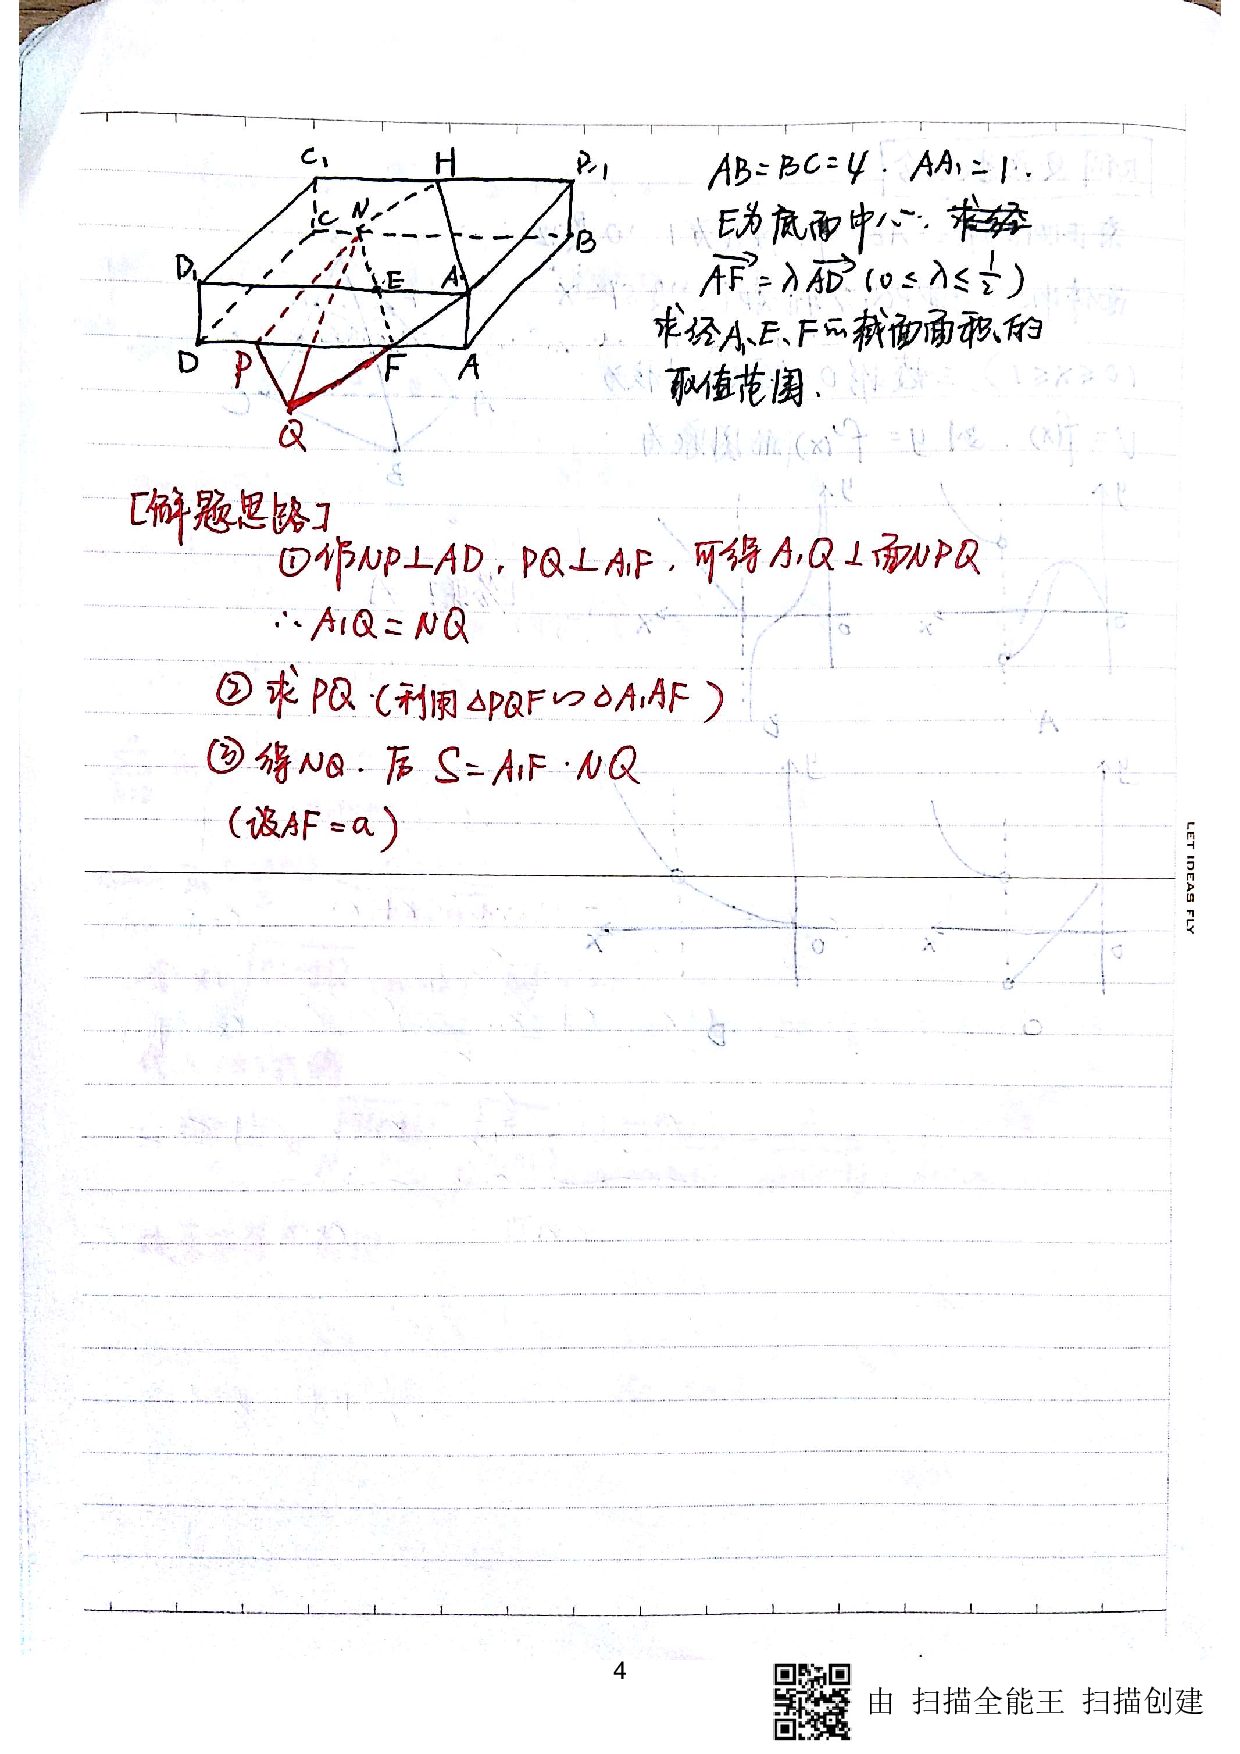 C₁ H B₁
AB=BC=4. AA₁=1.
C N B
E为底面中心.
D₁ E A₁
AF=λAD (0≤λ≤1/2)
求经A₁、E、F的截面面积的
D P F A
取值范围.
Q
[解题思路]
①作NP⊥AD, PQ⊥A₁F, 可得A₁Q⊥面NPQ
∴A₁Q=NQ
②求PQ.(利用△PQF∽△A₁AF)
③得NQ. 后 S=A₁F·NQ
(设AF=a)
LET IDEAS FLY
4
由 扫描全能王 扫描创建